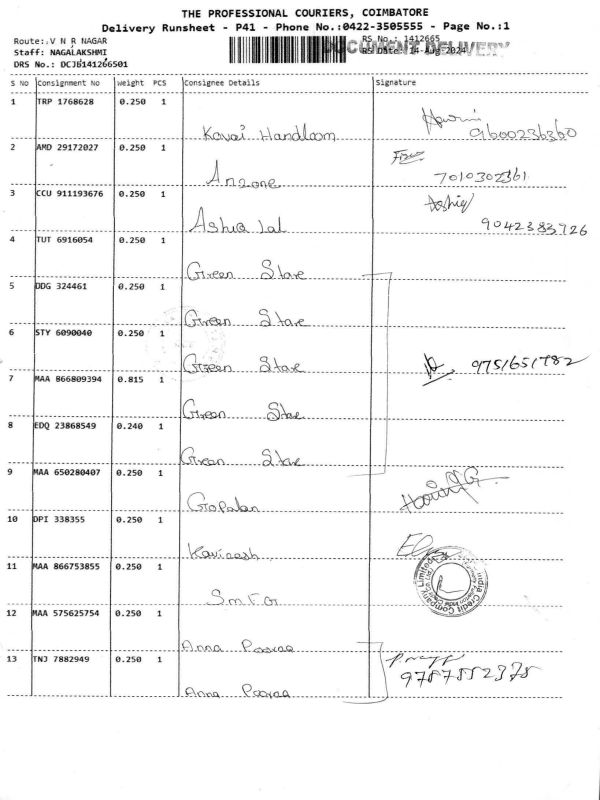 THE PROFESSIONAL COURIERS, COIMBATORE
Delivery Runsheet - P41 - Phone No.:0422-3505555 - Page No.:1
Route: V N R NAGAR
RS No.: 1412665
DOCUMENT DELIVERY
Staff: NAGALAKSHMI
RS Date: 14-Aug-2024
DRS No.: DCJB141266501
S NO Consignment No Weight PCS Consignee Details Signature
1 TRP 1768628 0.250 1
Kovai Handloom 9600236360
2 AMD 29172027 0.250 1
Anzone 7010302361
3 CCU 911193676 0.250 1
Ashia Lal 9042383926
4 TUT 6916054 0.250 1
Green Stare
5 DDG 324461 0.250 1
Green Stare
6 STY 6090040 0.250 1
Green Stare 9751651782
7 MAA 866809394 0.815 1
Green Stae
8 EDQ 23868549 0.240 1
Green Stare
9 MAA 650280407 0.250 1
Gopalan
10 DPI 338355 0.250 1
Kavinesh
11 MAA 866753855 0.250 1
India Credit Company Limited
S.m F.G
12 MAA 575625754 0.250 1
Anna Pooraa
13 TNJ 7882949 0.250 1
9787552378
Anna Pooraa